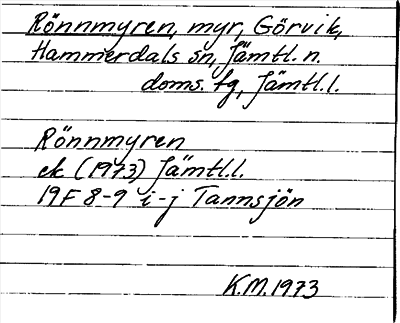 Rönnmyren, myr, Görvik,
Hammerdals sn, Jämtl. n.
doms. fg, Jämtl. l.
Rönnmyren
ek (1973) Jämtl. l.
19F 8-9 i-j Tannsjön
K.M. 1973